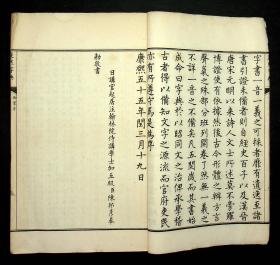 字書一音一義之可採者靡有遺逸至諸
書引證未備者則自經史百子以及漢晉
唐宋元明以來詩人文士所述莫不旁羅
博證使有依據然後古今形體之辨方言
聲氣之殊部分班列開卷了然無一義之
不詳一音之不備矣凡五閱歲而其書始
成命曰字典於以昭同文之治俾承學稽
古者得以備知文字之源流而官府吏民
亦有所遵守焉是爲序
康熙五十五年閏三月十九日
日講官起居注翰林院侍講學士加五級臣陳邦彥奉
勅敬書